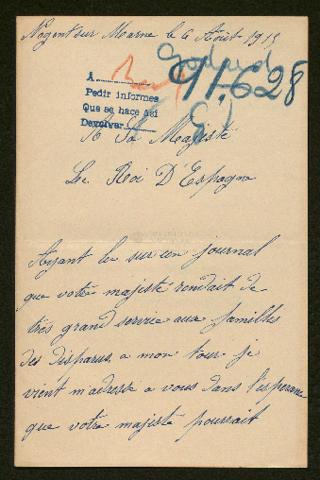 Nogent sur Marne le 6 Août 1915
Godard
91.628
A
Pedir informes
Que se hace asi
Devolver
A Sa Majesté
Le Roi D'Espagne
Ayant lu sur un journal
que votre majesté rendait de
très grand service aux familles
des disparus, a mon tour je
vient m'adressé a vous dans l'esperance
que votre majesté pourrait